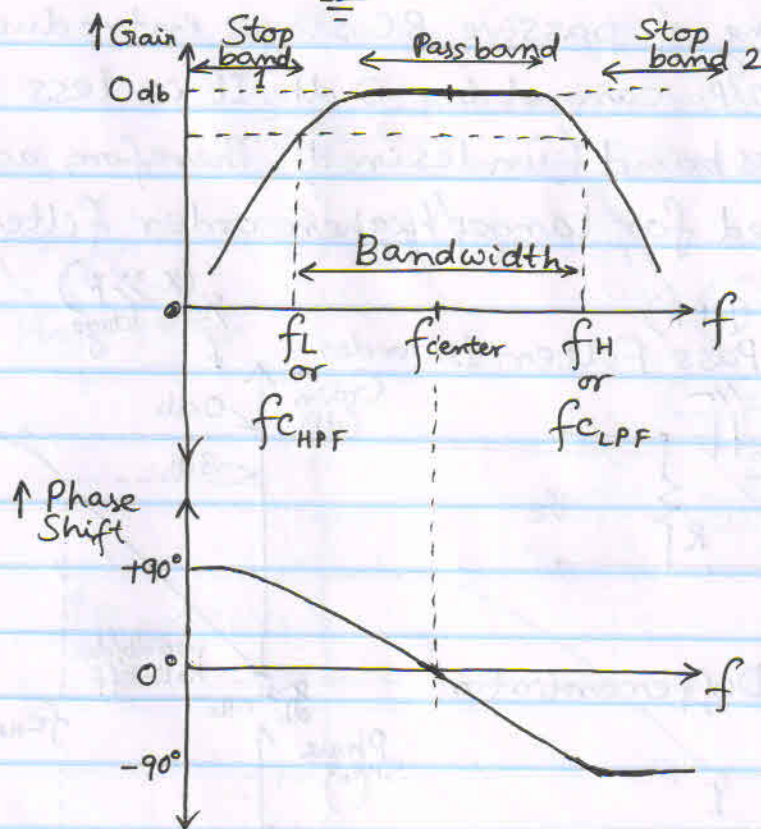 ↑ Gain
Stop band 1
Pass band
Stop band 2
0db
Bandwidth
f
fL or fCHPF
fcenter
fH or fCLPF
↑ Phase Shift
+90°
0°
f
-90°